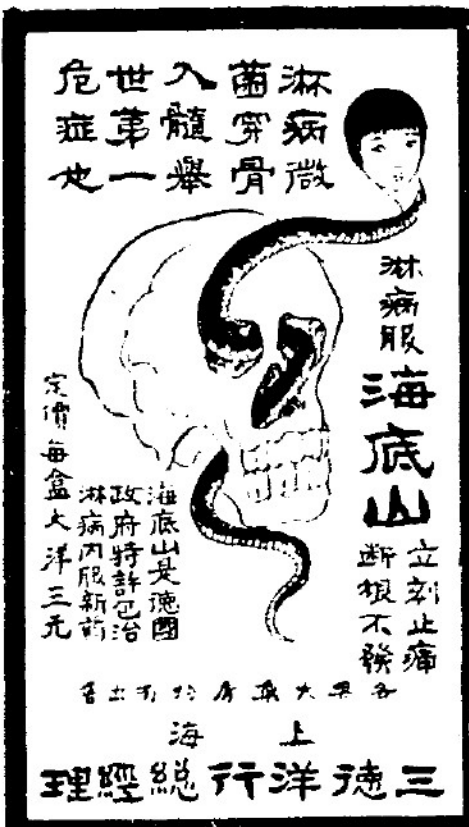 淋病微
菌穿骨
入髓舉
世第一
危症也
淋病服
海底山
立刻止痛
断根不發
海底山是德國
政府特許包治
淋病內服新药
定價每盒大洋三元
各大藥房均有出售
上海
三德洋行総經理